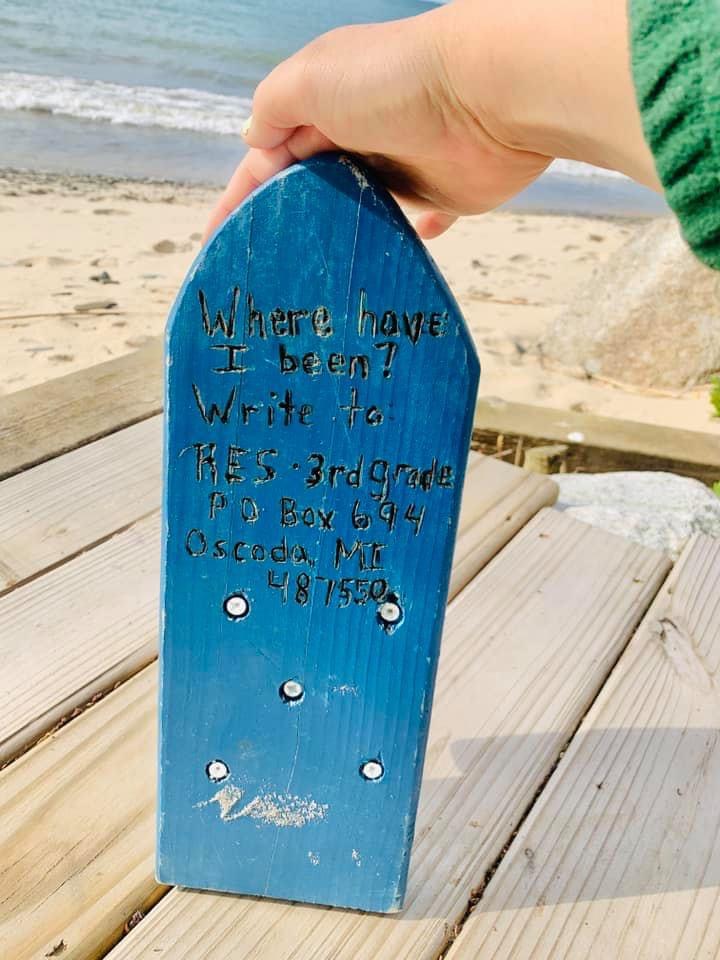 Where have
I been?
Write to:
RES · 3rd grade
PO Box 694
Oscoda, MI
487550